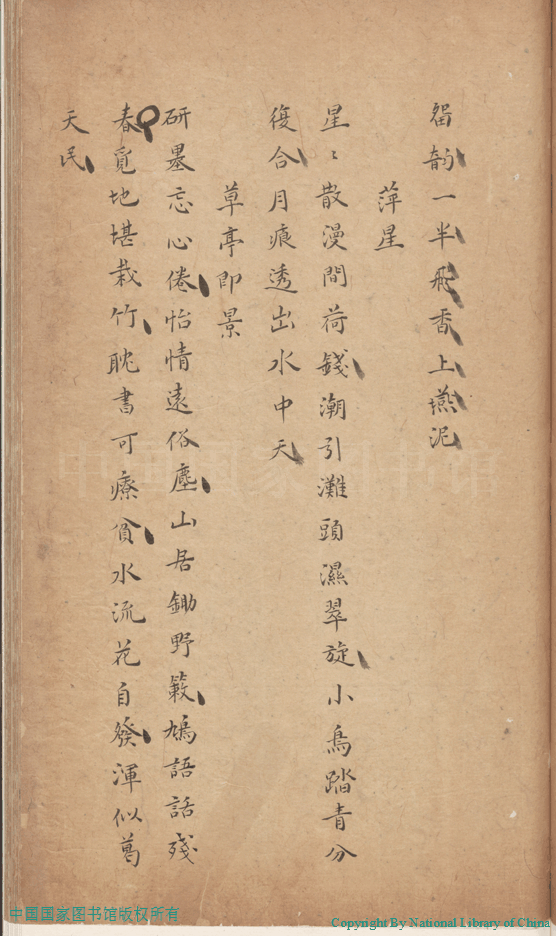 留韵一半飛香上燕泥
萍星
星〻散漫間荷錢潮引灘頭濕翠旋小鳥踏青分
復合月痕透出水中天
草亭即景
研墨忘心倦怡情遠俗塵山居鋤野簌鳩語話殘
春覓地堪栽竹耽書可療貧水流花自發渾似葛
天民
中国国家图书馆
中国国家图书馆版权所有
Copyright By National Library of China